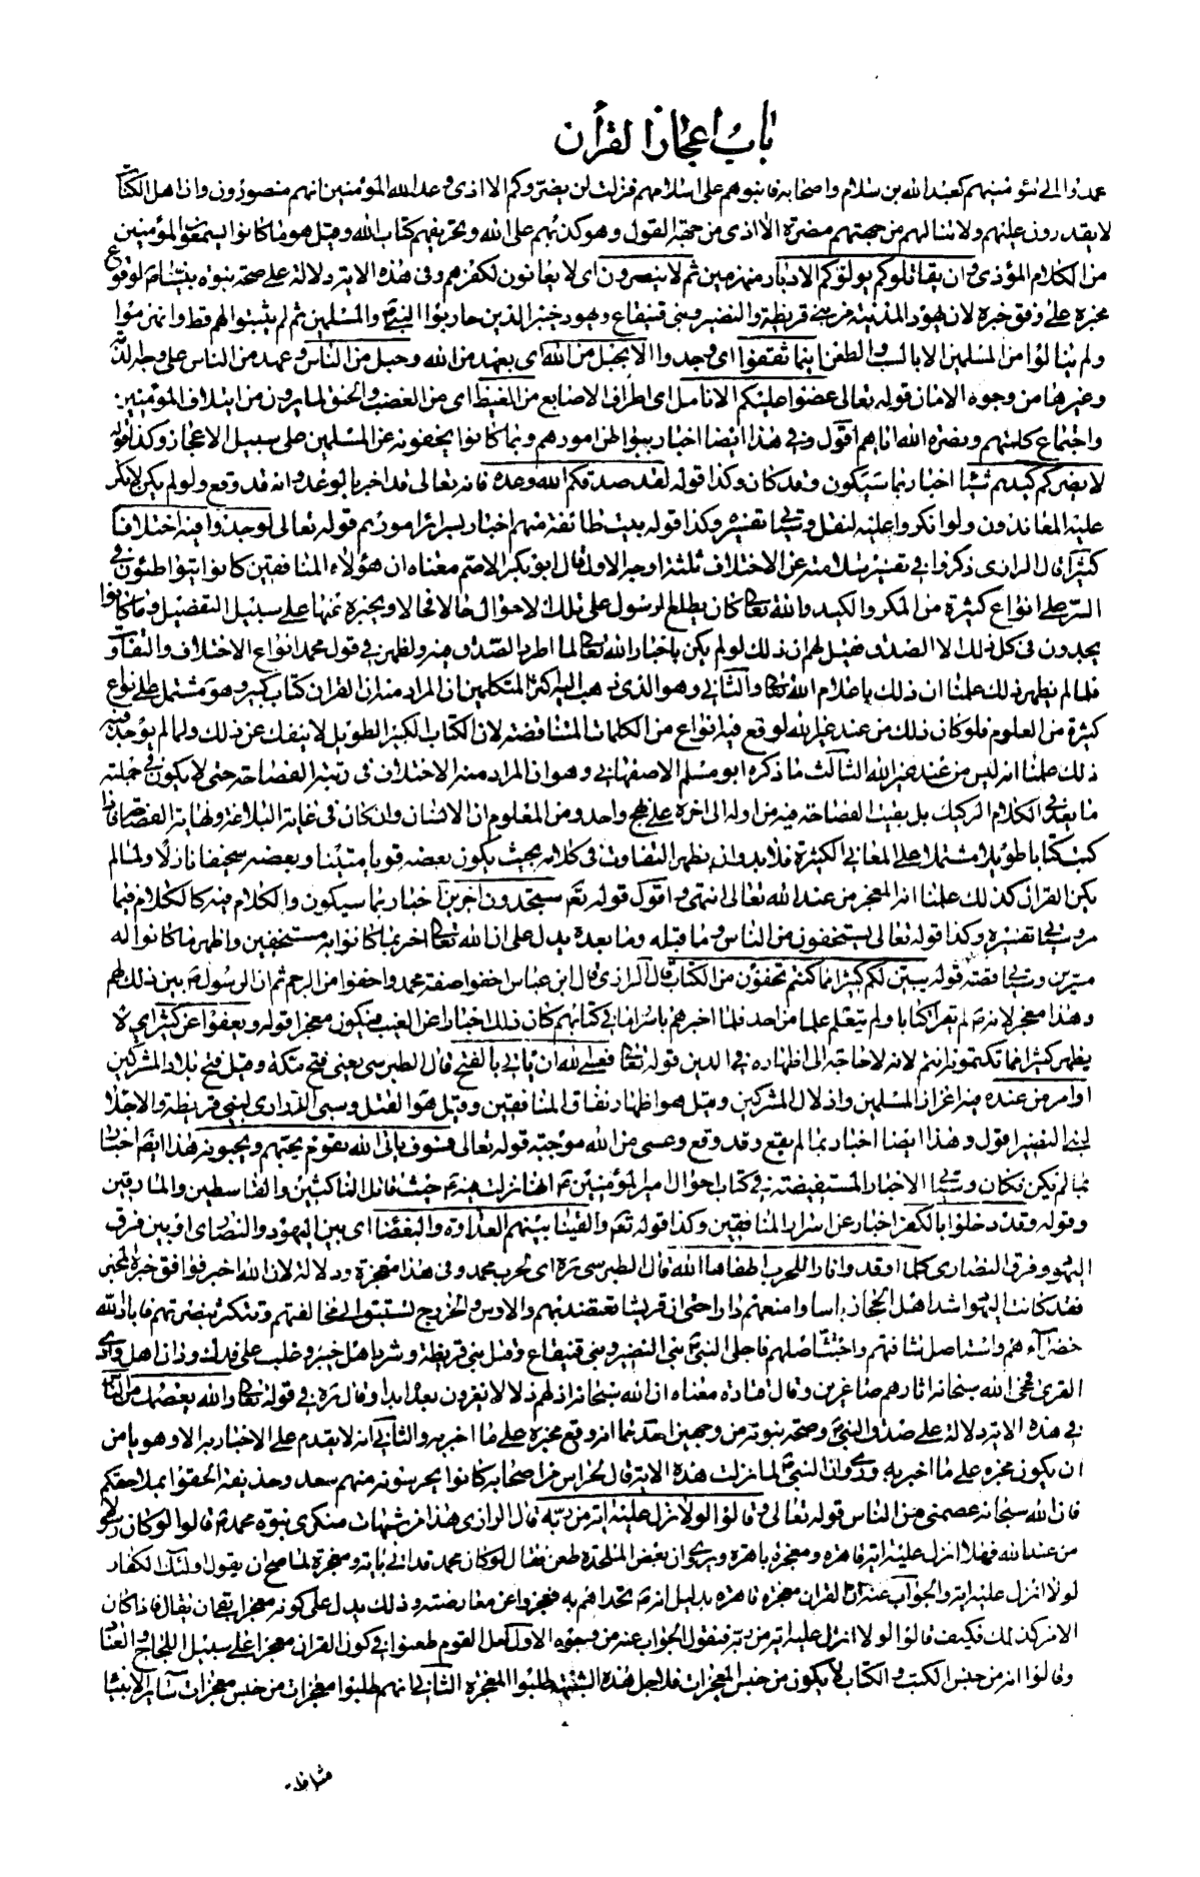 باب اعجاز القرآن
عمدوا الى مؤمنيهم كعبد الله بن سلام واصحابه فانبوهم على اسلامهم فنزلت لن يضروكم الا اذى وعد الله المؤمنين انهم منصورون وان اهل الكتاب
لا يقدرون عليهم ولا ينالهم من جهتهم مضرة الا اذى من جهة القول وهو كذبهم على الله وتحريفهم كتاب الله وقيل هو ما كانوا يسمعون المؤمنين
من الكلام المؤذي وان يقاتلوكم يولوكم الادبار منهزمين ثم لا ينصرون اى لا يعانون لكفرهم وفى هذه الاية دلالة على صحة نبوة نبينا م لوقوع
مخبره على وفق خبره لان يهود المدينة من بنى قريظة والنضير وبنى قينقاع ويهود خيبر الذين حاربوا النبي والمسلمين ثم لم يثبتوا لهم قط وانهزموا
ولم ينالوا من المسلمين الا بالسب والطعن اينما ثقفوا اى وجدوا الا بحبل من الله اى بعهد من الله وحبل من الناس وعهد من الناس على وجه الذمة
وغيرها من وجوه الامان قوله تعالى عضوا عليكم الانامل اى اطراف الاصابع من الغيظ اى من الغضب والحنق لما يرون من ايتلاف المؤمنين
واجتماع كلمتهم ونصرة الله اياهم اقول وفي هذا ايضا اخبار ببواطن امورهم وبما كانوا يخفونه عن المسلمين على سبيل الاعجاز وكذا قوله
لا يضركم كيدهم شيئا اخبار بما سيكون وقد كان وكذا قوله لقد صدقكم الله وعده فانه تعالى قد اخبر بالوعد وانه قد وقع ولو لم يكن لانكر
عليه المعاندون ولو انكروا عليه لنقل وسياتي تفسيره وكذا قوله بيت طائفة منهم اخبار بسرائر امورهم قوله تعالى لوجدوا فيه اختلافا
كثيرا قال الرازى ذكروا في تفسير سلامته عن الاختلاف ثلثة اوجه الاول قال ابو بكر الاصم معناه ان هؤلاء المنافقين كانوا يتواطئون في
السر على انواع كثيرة من المكر والكيد والله تعالى كان يطلع الرسول على تلك الاحوال حالا فحالا ويخبره عنها على سبيل التفصيل وما كانوا
يجدون فى كل ذلك الا الصدق فقيل لهم ان ذلك لو لم يكن باخبار الله تعالى لما اطرد الصدق فيه ولظهر في قول محمد انواع الاختلاف والتفاوت
فلما لم يظهر ذلك علمنا ان ذلك باعلام الله تعالى والثاني وهو الذى ذهب اليه اكثر المتكلمين ان المراد منه ان القران كتاب كبير وهو مشتمل على انواع
كثيرة من العلوم فلو كان ذلك من عند غير الله لوقع فيه انواع من الكلمات المتناقضة لان الكتاب الكبير الطويل لا ينفك عن ذلك ولما لم يوجد فيه
ذلك علمنا انه ليس من عند غير الله الثالث ما ذكره ابو مسلم الاصفهاني وهو ان المراد منه الاختلاف فى رتبة الفصاحة حتى لا يكون في جملته
ما يعد في الكلام الركيك بل بقيت الفصاحة فيه من اوله الى اخره على نهج واحد ومن المعلوم ان الانسان وان كان فى غاية البلاغة ونهاية الفصاحة فاذا
كتب كتابا طويلا مشتملا على المعاني الكثيرة فلا بد وان يظهر التفاوت فى كلامه بحيث يكون بعضه قويا متينا وبعضه سخيفا نازلا ولما لم
يكن القران كذلك علمنا انه المعجز من عند الله تعالى انتهى واقول قوله تع ستجدون اخرين اخبار بما سيكون والكلام فيه كالكلام فيما
مر وسياتي تفسيره وكذا قوله تعالى يستخفون من الناس وما قبله وما بعده يدل على ان الله تعالى اخبر بما كانوا به مستخفين واظهر ما كانوا له
مسرين وسياتي قصته قوله يبين لكم كثيرا مما كنتم تخفون من الكتاب قال الرازى قال ابن عباس اخفوا صفة محمد واخفوا من الرجم ثم ان الرسول م بين ذلك لهم
وهذا معجز لانه م لم يقرأ كتابا ولم يتعلم علما من احد فلما اخبرهم باسرار ما في كتابهم كان ذلك اخبارا عن الغيب فيكون معجزا قوله ويعفوا عن كثير اي لا
يظهر كثيرا مما تكتمونه انتم لانه لا حاجة الى اظهاره في الدين قوله تعالى فعسى الله ان ياتي بالفتح قال الطبرسى يعنى فتح مكة وقيل فتح بلاد المشركين
او امر من عنده فيه اعزاز المسلمين واذلال المشركين وقيل هو اظهار نفاق المنافقين وقيل هو القتل وسبى الذرارى لبنى قريظة والاجلاء
لبنى النضير اقول وهذا ايضا اخبار بما لم يقع وقد وقع وعسى من الله موجبة قوله تعالى فسوف ياتى الله بقوم يحبهم ويحبونه هذا ايضا اخبار
بما لم يكن فكان وستاتي الاخبار المستفيضة في كتاب احوال امير المؤمنين م انها نزلت فيه م حيث قاتل الناكثين والقاسطين والمارقين
وقوله وقد دخلوا بالكفر اخبار عن اسرار المنافقين وكذا قوله تع والقينا بينهم العداوة والبغضاء اى بين اليهود والنصارى او بين فرق
اليهود وفرق النصارى كلما اوقدوا نارا للحرب اطفاها الله قال الطبرسى ره اى لحرب محمد وفى هذا معجزة ودلالة لان الله اخبر فوافق خبره المخبر
فقد كانت اليهود اشد اهل الحجاز باسا وامنعهم دارا حتى ان قريشا تعتضد بهم والاوس والخزرج تستبق الى مخالفتهم وتتكثر بنصرتهم فاباد الله
خضراءهم واستاصل شافتهم واجتث اصلهم فاجلى النبي م بنى النضير وبنى قينقاع وقتل بنى قريظة وشرد اهل خيبر وغلب على فدك ودان اهل وادى
القرى فمحى الله سبحانه اثارهم صاغرين وقال قتادة معناه ان الله سبحانه اذلهم ذلا لا يعزون بعده ابدا وقال ره في قوله تعالى والله يعصمك من الناس
في هذه الاية دلالة على صدق النبي م وصحة نبوته من وجهين احدهما انه وقع مخبره على ما اخبر به والثاني انه لا يقدم على الاخبار به الا وهو يامن
ان يكون مخبره على ما اخبر به وروى ان النبي م لما نزلت هذه الاية قال لحراس من اصحابه كانوا يحرسونه منهم سعد وحذيفة الحقوا بملاحقكم
فان الله سبحانه عصمنى من الناس قوله تعالى وقالوا لولا نزل عليه اية من ربه قال الرازى هذا من شبهات منكرى نبوة محمد م قالوا لو كان رسولا
من عند الله فهلا انزل عليه اية قاهرة ومعجزة باهرة ويروى ان بعض الملحدة طعن فقال لو كان محمد قد اتى باية ومعجزة لما صح ان يقول اولئك الكفار
لولا انزل عليه اية والجواب عنه ان القران معجزة قاهرة بدليل انه م تحداهم به فعجزوا عن معارضته وذلك يدل على كونه معجزا بقى ان يقال فاذا كان
الامر كذلك فكيف قالوا لولا انزل عليه اية من ربه فنقول الجواب عنه من وجوه الاول لعل القوم طعنوا في كون القران معجزا على سبيل اللجاج والعناد
وقالوا انه من جنس الكتب والكتاب لا يكون من جنس المعجزات فلاجل هذه الشبهة طلبوا المعجزة الثاني انهم طلبوا معجزات من جنس معجزات ساير الانبيا